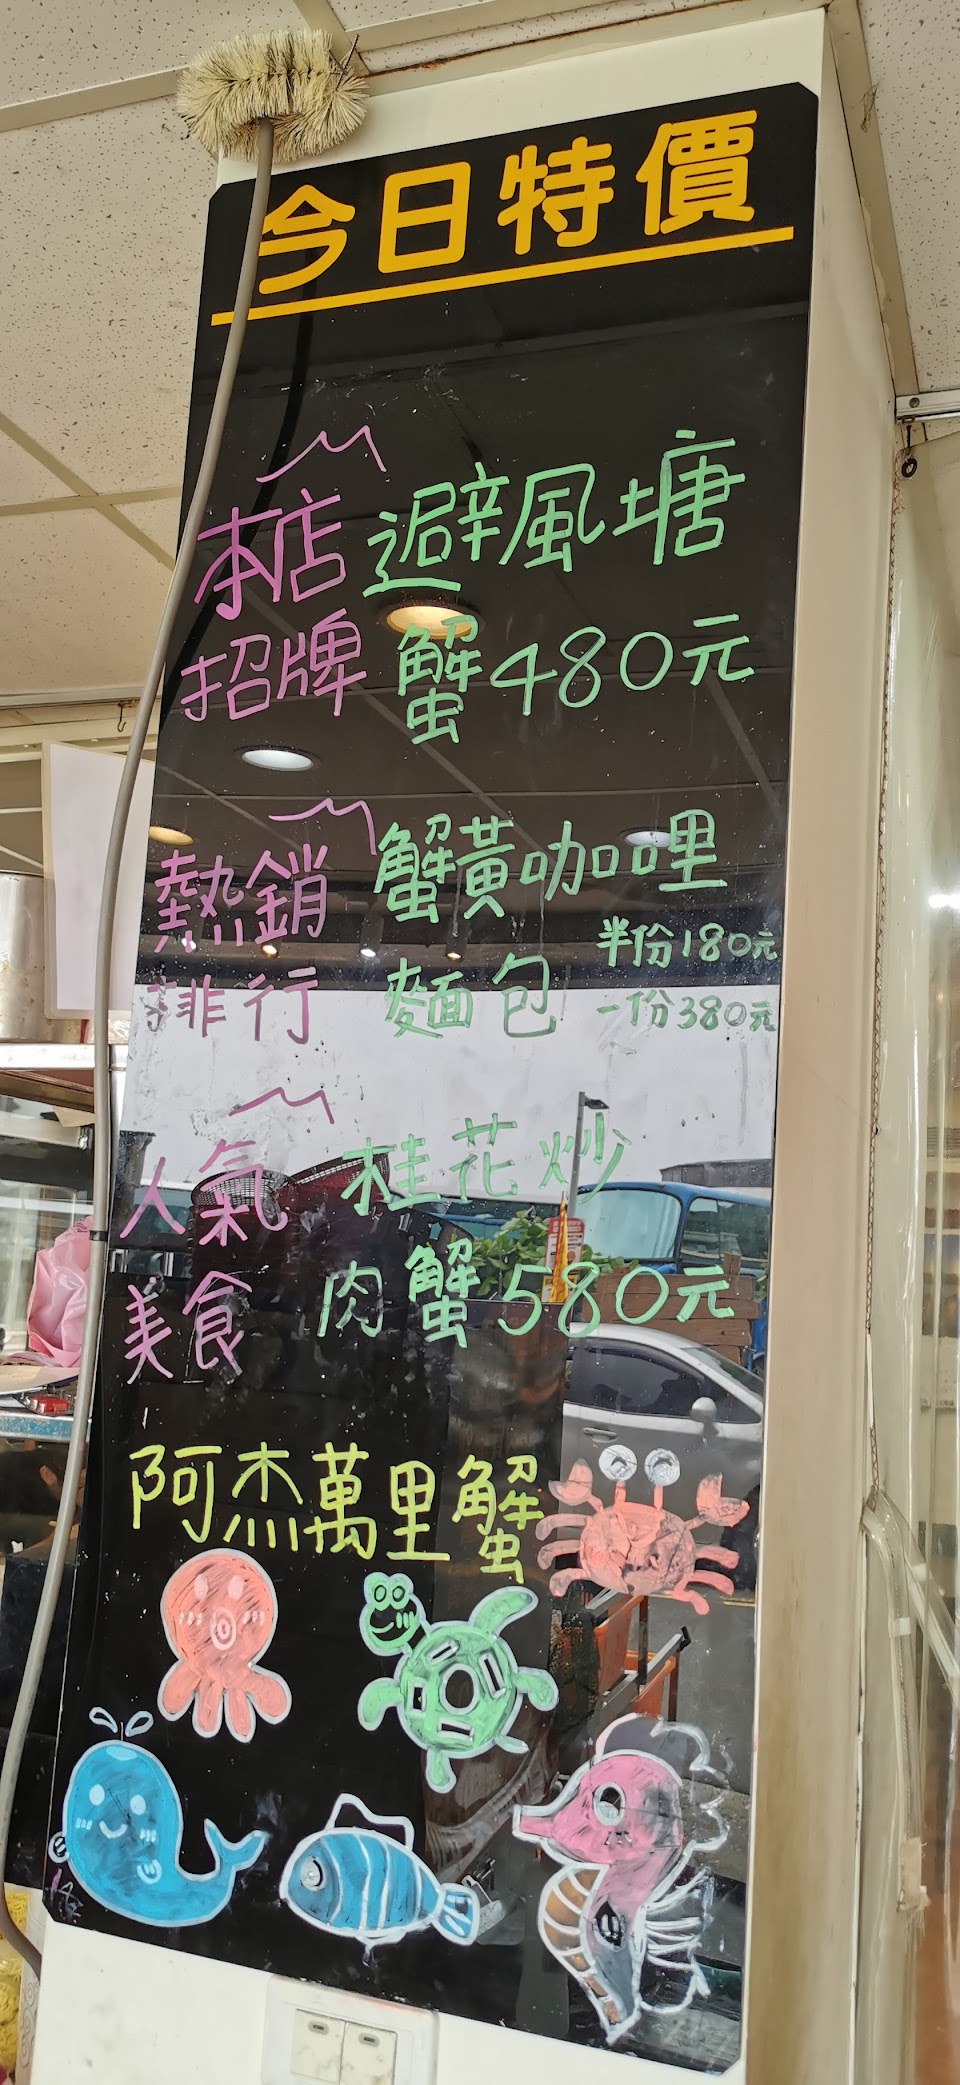 今日特價
本店 避風塘
招牌 蟹480元
熱銷 蟹黃咖哩
半份180元
排行 麵包 一份380元
人氣 桂花炒
美食 肉蟹580元
阿杰萬里蟹